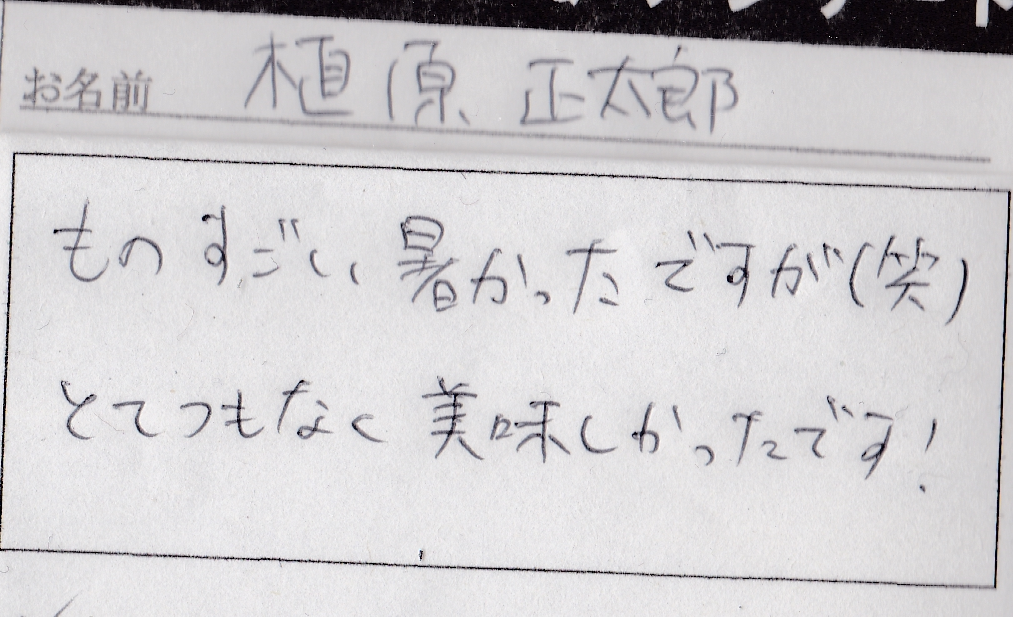 お名前 植原 正太郎
ものすごい、暑かったですが(笑)
とてつもなく美味しかったです!